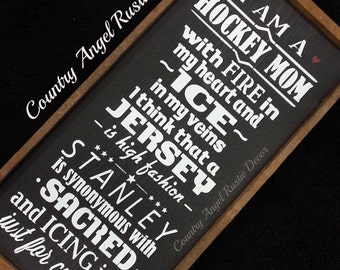 I AM A
HOCKEY MOM
with FIRE in
my heart and
ICE
in my veins
I think that a
JERSEY
is high fashion
STANLEY
is synonymous with
SACRED
and ICING i
just for c
Country Angel Rustic
Country Angel Rustic Decor